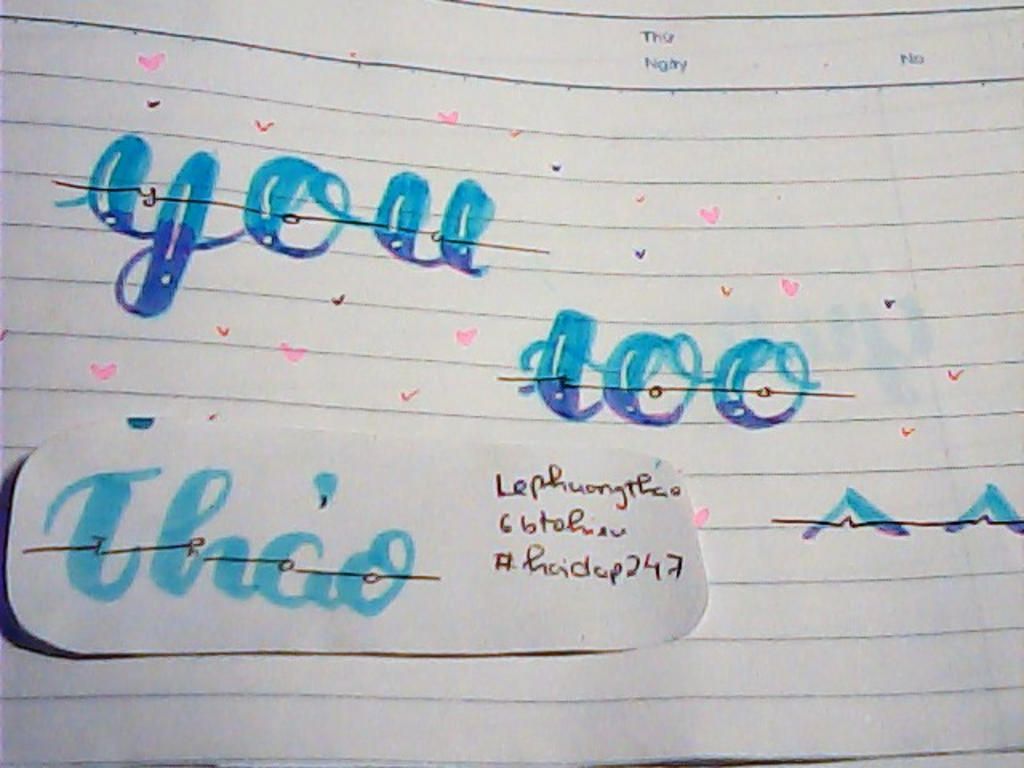 Thứ
Ngày No
you
too
Thảo
Lephuongthảo
6btohieu
#hoidap247
^ ^